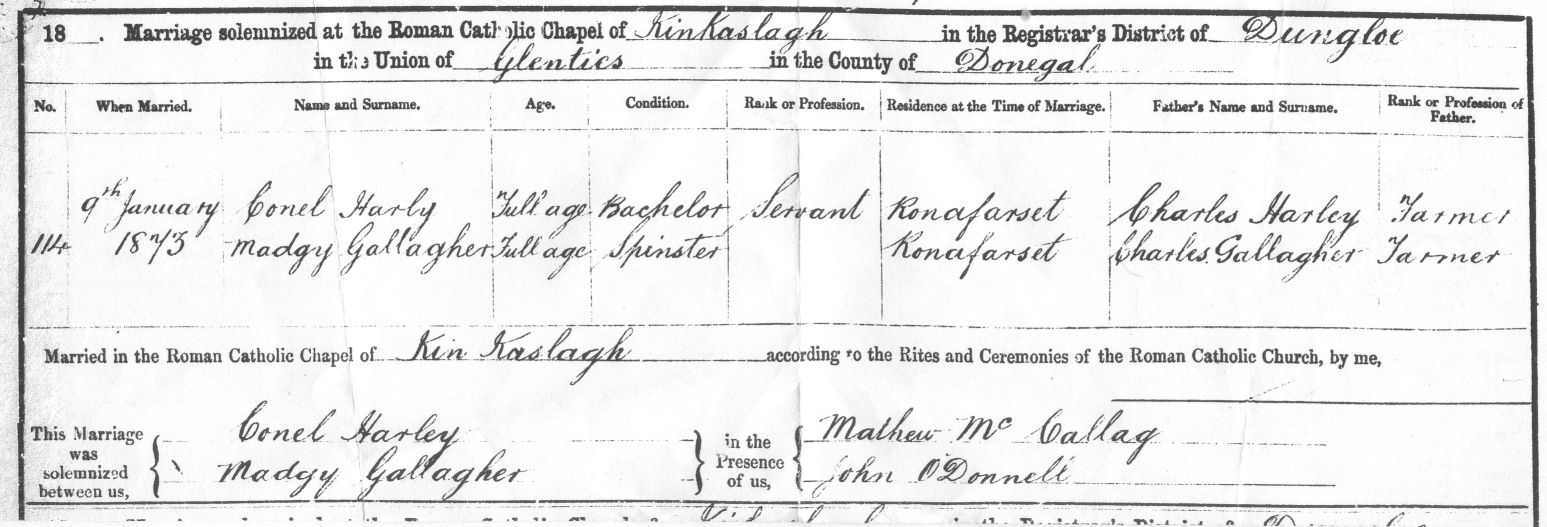 18 . Marriage solemnized at the Roman Catholic Chapel of KinKaslagh in the Registrar's District of Dungloe
in the Union of Glenties in the County of Donegal
No. When Married. Name and Surname. Age. Condition. Rank or Profession. Residence at the Time of Marriage. Father's Name and Surname. Rank or Profession of Father.
9th January Conel Harly Full age Bachelor Servant Ronafarset Charles Harley Farmer
114 1873 Madgy Gallagher Full age Spinster Ronafarset Charles Gallagher Farmer
Married in the Roman Catholic Chapel of Kin Kaslagh according to the Rites and Ceremonies of the Roman Catholic Church, by me,
This Marriage was solemnized between us, Conel Harley in the Presence of us, Mathew Mc Callag
Madgy Gallagher John O'Donnell